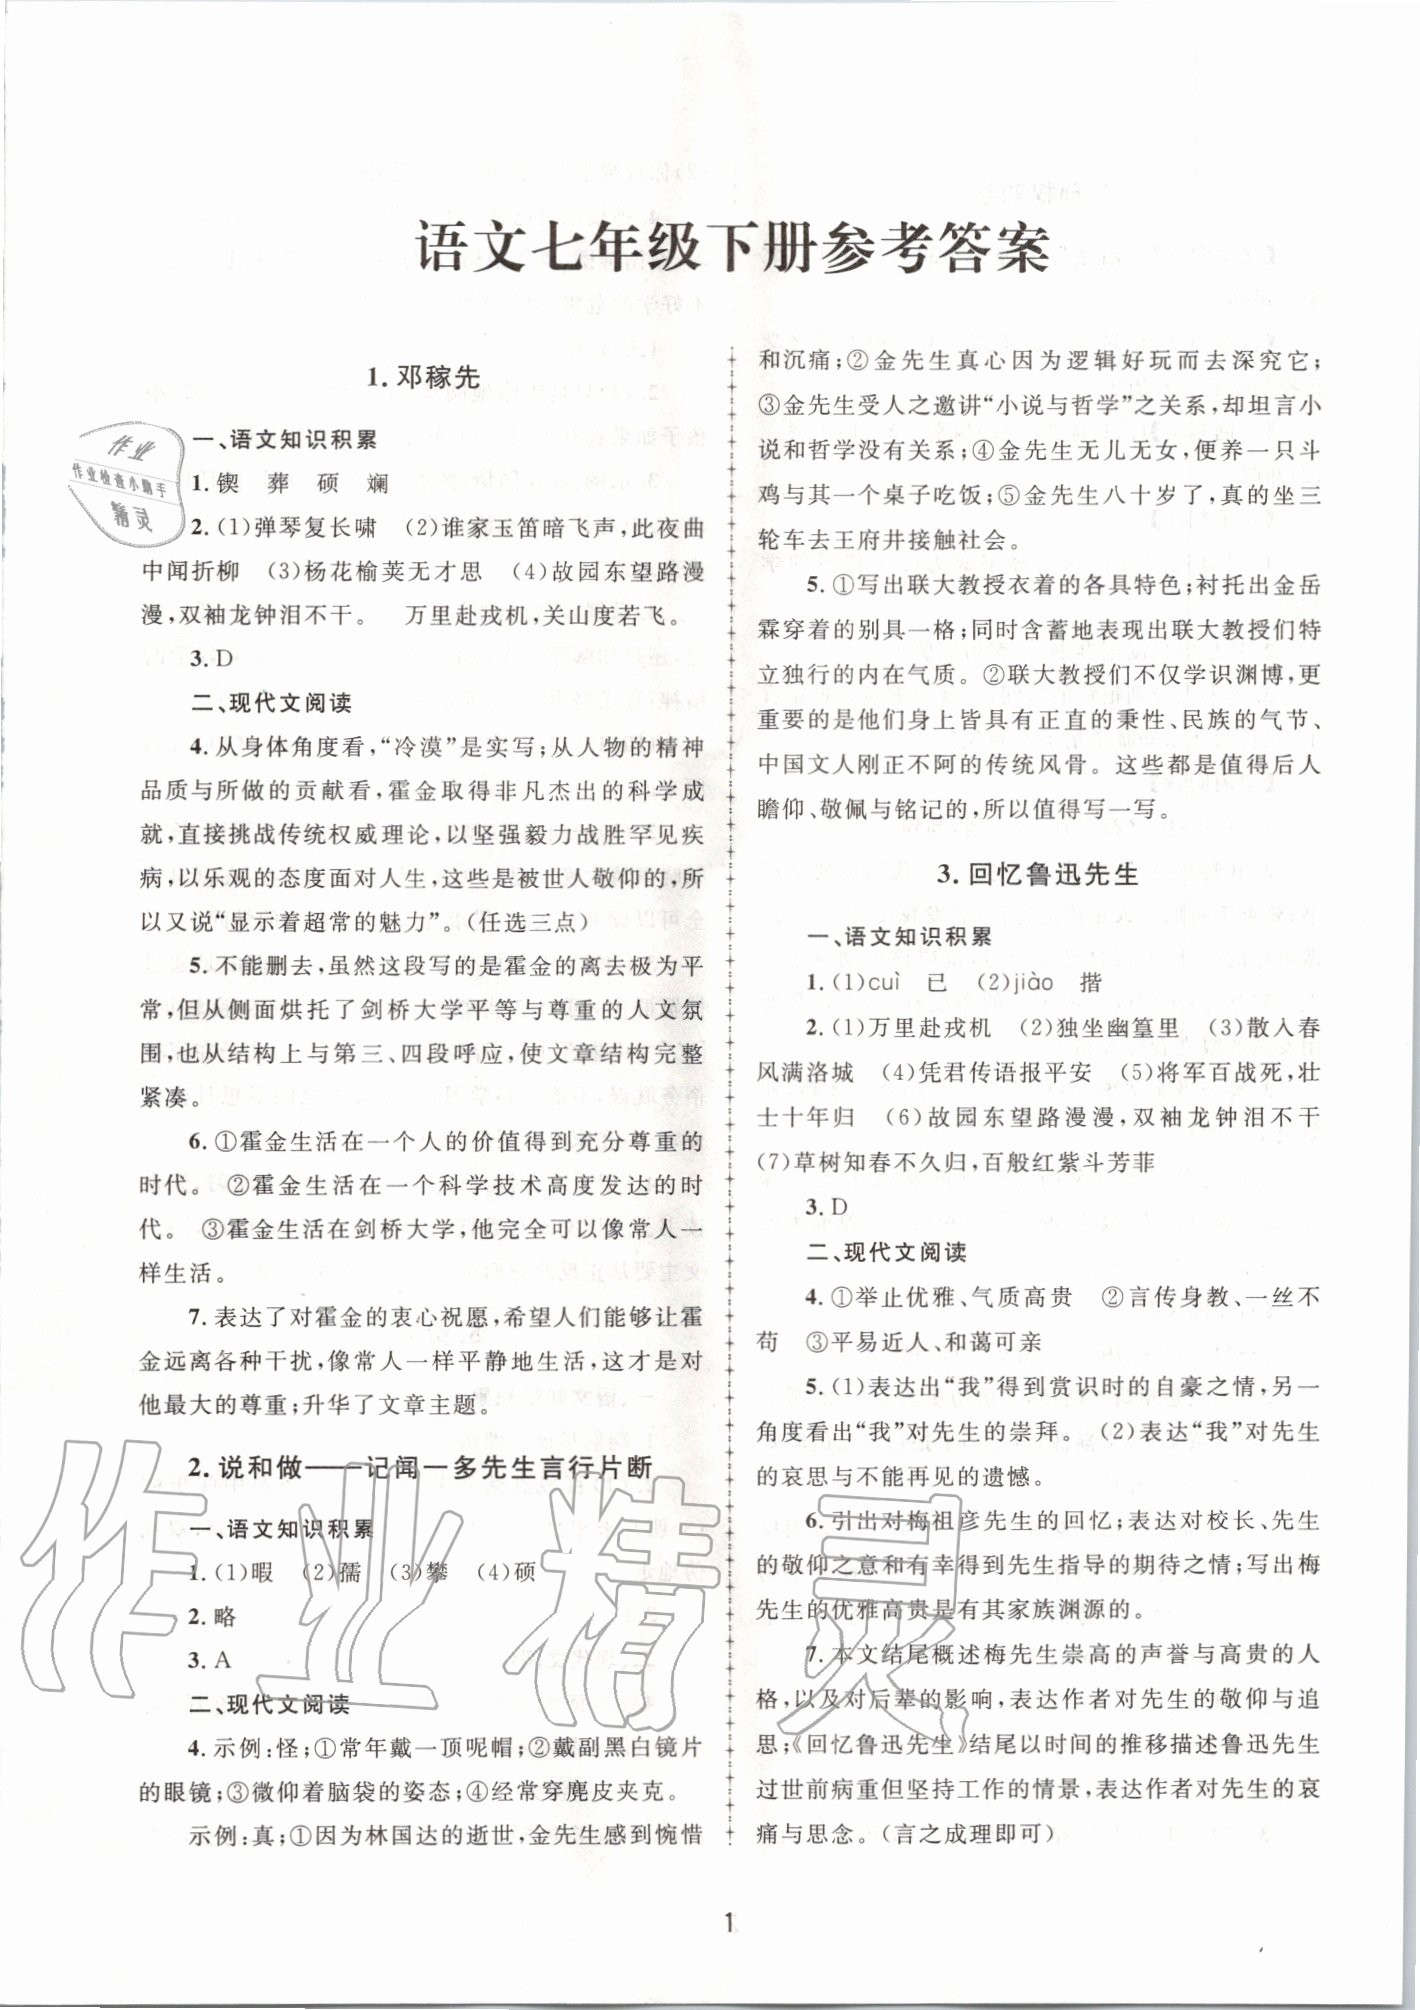 语文七年级下册参考答案
1.邓稼先
一、语文知识积累
1.锲　葬　硕　斓
2.(1)弹琴复长啸　(2)谁家玉笛暗飞声,此夜曲
中闻折柳　(3)杨花榆荚无才思　(4)故园东望路漫
漫,双袖龙钟泪不干。　万里赴戎机,关山度若飞。
3.D
二、现代文阅读
4.从身体角度看,“冷漠”是实写;从人物的精神
品质与所做的贡献看,霍金取得非凡杰出的科学成
就,直接挑战传统权威理论,以坚强毅力战胜罕见疾
病,以乐观的态度面对人生,这些是被世人敬仰的,所
以又说“显示着超常的魅力”。(任选三点)
5.不能删去,虽然这段写的是霍金的离去极为平
常,但从侧面烘托了剑桥大学平等与尊重的人文氛
围,也从结构上与第三、四段呼应,使文章结构完整
紧凑。
6.①霍金生活在一个人的价值得到充分尊重的
时代。　②霍金生活在一个科学技术高度发达的时
代。　③霍金生活在剑桥大学,他完全可以像常人一
样生活。
7.表达了对霍金的衷心祝愿,希望人们能够让霍
金远离各种干扰,像常人一样平静地生活,这才是对
他最大的尊重;升华了文章主题。
2.说和做——记闻一多先生言行片断
一、语文知识积累
1.(1)暇　(2)孺　(3)攀　(4)硕
2.略
3.A
二、现代文阅读
4.示例:怪;①常年戴一顶呢帽;②戴副黑白镜片
的眼镜;③微仰着脑袋的姿态;④经常穿麂皮夹克。
示例:真;①因为林国达的逝世,金先生感到惋惜
和沉痛;②金先生真心因为逻辑好玩而去深究它;
③金先生受人之邀讲“小说与哲学”之关系,却坦言小
说和哲学没有关系;④金先生无儿无女,便养一只斗
鸡与其一个桌子吃饭;⑤金先生八十岁了,真的坐三
轮车去王府井接触社会。
5.①写出联大教授衣着的各具特色;衬托出金岳
霖穿着的别具一格;同时含蓄地表现出联大教授们特
立独行的内在气质。②联大教授们不仅学识渊博,更
重要的是他们身上皆具有正直的秉性、民族的气节、
中国文人刚正不阿的传统风骨。这些都是值得后人
瞻仰、敬佩与铭记的,所以值得写一写。
3.回忆鲁迅先生
一、语文知识积累
1.(1)cuì　已　(2)jiào　揩
2.(1)万里赴戎机　(2)独坐幽篁里　(3)散入春
风满洛城　(4)凭君传语报平安　(5)将军百战死,壮
士十年归　(6)故园东望路漫漫,双袖龙钟泪不干
(7)草树知春不久归,百般红紫斗芳菲
3.D
二、现代文阅读
4.①举止优雅、气质高贵　②言传身教、一丝不
苟　③平易近人、和蔼可亲
5.(1)表达出“我”得到赏识时的自豪之情,另一
角度看出“我”对先生的崇拜。　(2)表达“我”对先生
的哀思与不能再见的遗憾。
6.引出对梅祖彦先生的回忆;表达对校长、先生
的敬仰之意和有幸得到先生指导的期待之情;写出梅
先生的优雅高贵是有其家族渊源的。
7.本文结尾概述梅先生崇高的声誉与高贵的人
格,以及对后辈的影响,表达作者对先生的敬仰与追
思;《回忆鲁迅先生》结尾以时间的推移描述鲁迅先生
过世前病重但坚持工作的情景,表达作者对先生的哀
痛与思念。(言之成理即可)
1
作业
作业检查小助手
精灵
作业精灵